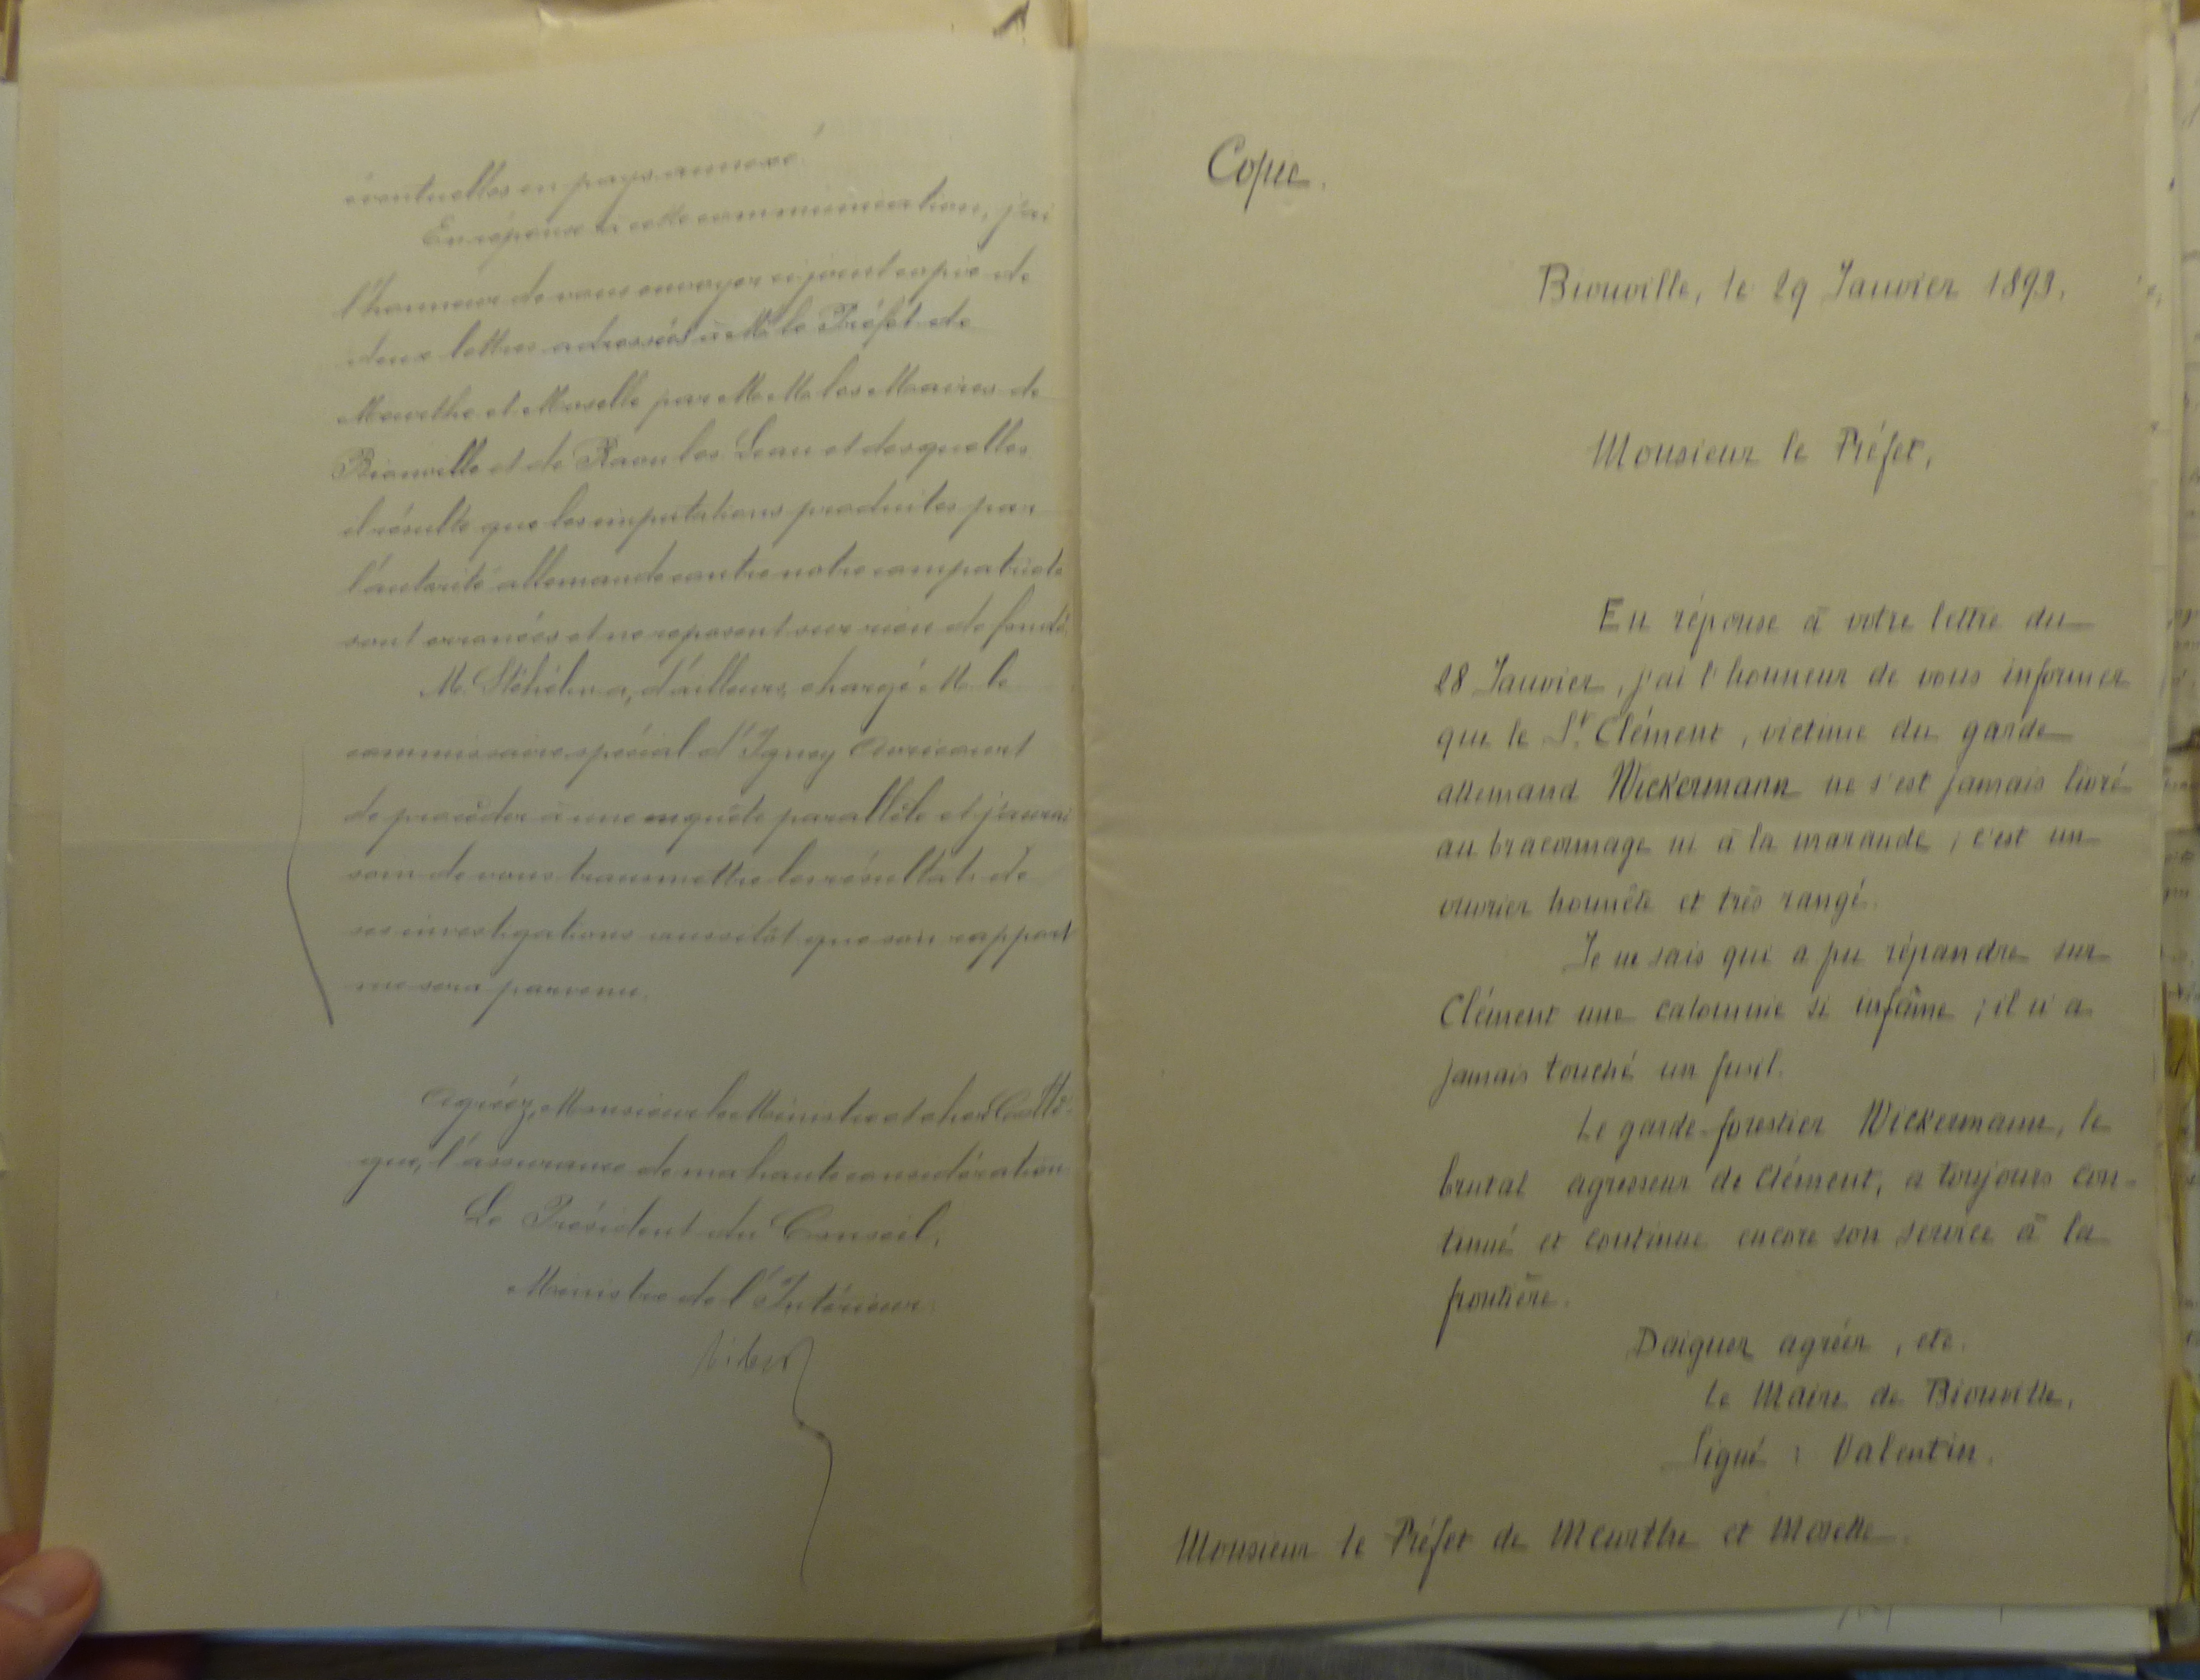 éventuelles en pays annexé.
En réponse à cette communication, j'ai
l'honneur de vous envoyer ci-joint copie de
deux lettres adressées à M. le Préfet de
Meurthe et Moselle par M.M. les Maires de
Bionville et de Raon les Leau et desquelles
il résulte que les imputations produites par
l'autorité allemande contre notre compatriote
sont erronées et ne reposent sur rien de fondé.
M. Stéhelin a, d'ailleurs, chargé M. le
commissaire spécial d'Igney Avricourt
de procéder à une enquête parallèle et j'aurai
soin de vous transmettre les résultats de
ses investigations aussitôt que son rapport
me sera parvenu.
Agréez, Monsieur le Ministre et cher Collè-
gue, l'assurance de ma haute considération
Le Président du Conseil,
Ministre de l'Intérieur,
Ribot
Copie.
Bionville, le 29 Janvier 1893.
Monsieur le Préfet,
En réponse à votre lettre du
28 Janvier, j'ai l'honneur de vous informer
que le Sr. Clément, victime du garde
allemand Wickermann ne s'est jamais livré
au braconnage ni à la maraude ; c'est un
ouvrier honnête et très rangé.
Je ne sais qui a pu répandre sur
Clément une calomnie si infâme ; il n'a
jamais touché un fusil.
Le garde-forestier Wickermann, le
brutal agresseur de Clément, a toujours con-
tinué et continue encore son service à la
frontière.
Daignez agréer, etc.
Le Maire de Bionville,
Signé : Valentin.
Monsieur le Préfet de Meurthe et Moselle.